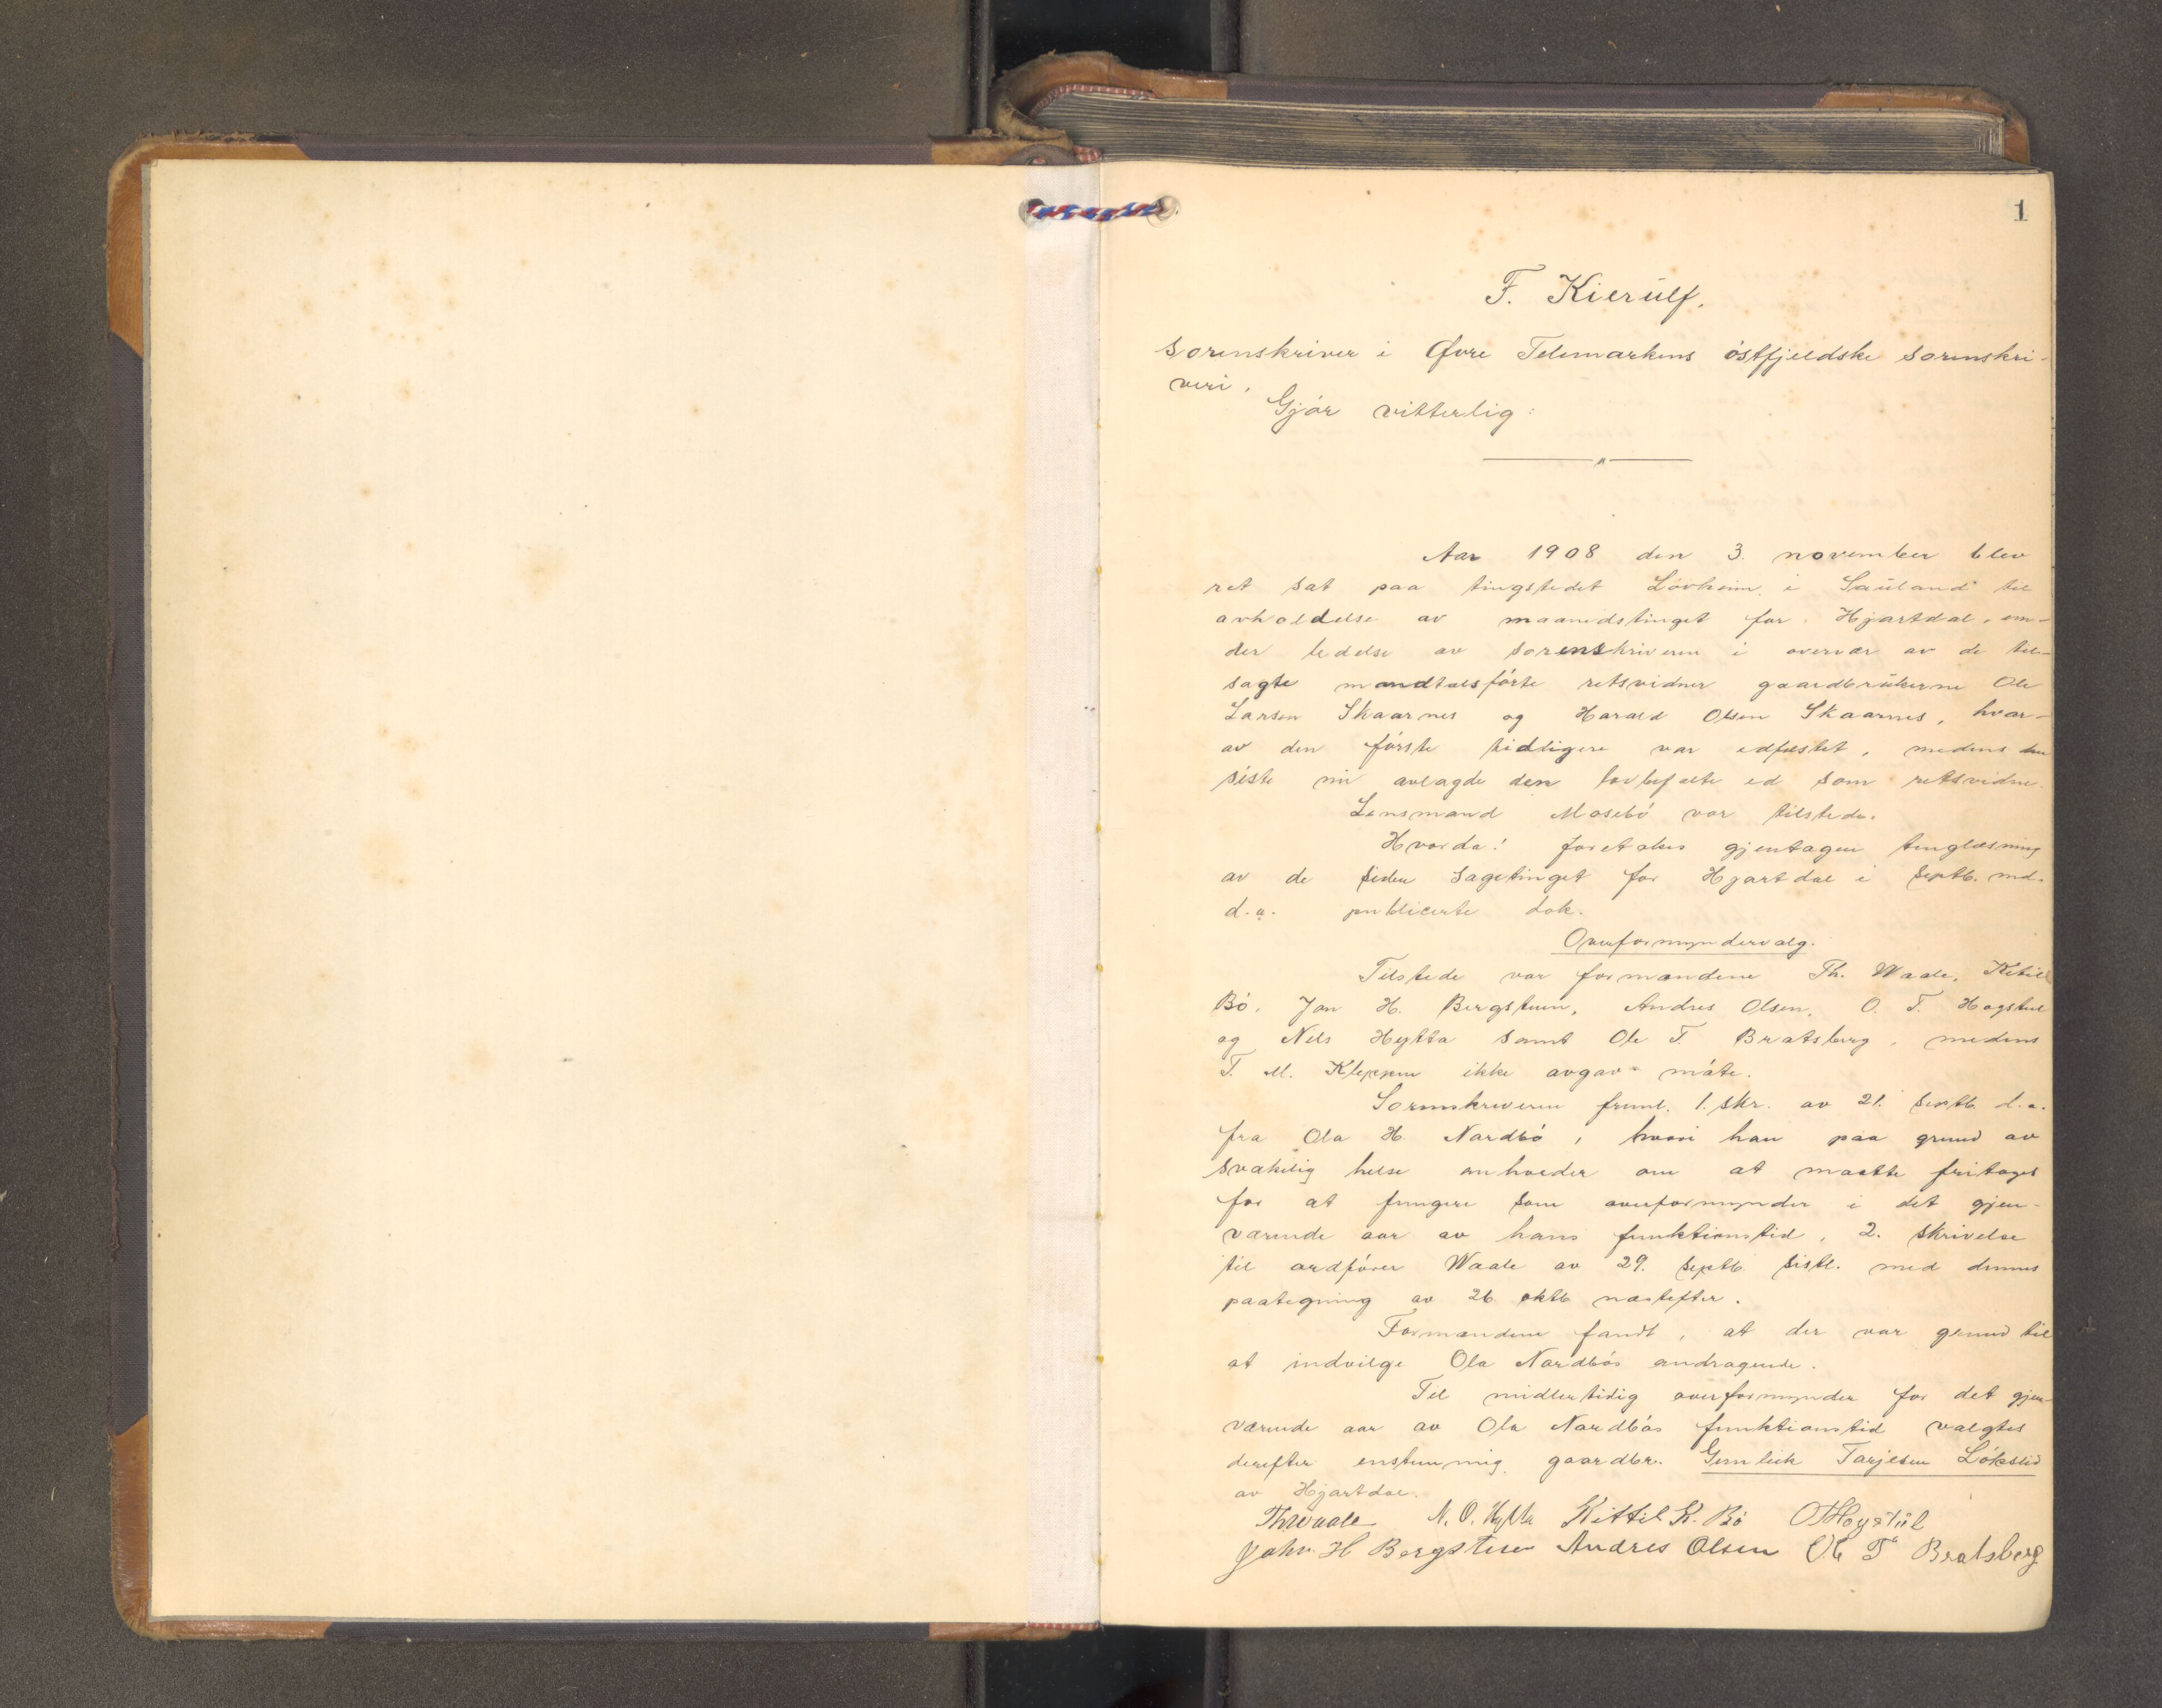 1
F. Kierulf,
sorenskriver i Øvre Telemarkens östfjeldske sorenskri-
veri.
Gjör vitterlig:
Aar 1908 den 3. november blev
ret sat paa tingstedet Lövheim i Sauland til
avholdelse av maanedstinget for Hjartdal, un-
der ledelse av sorenskriveren i overvær av de til-
sagte mandtalsförte retsvidner gaardbrukerne Ole
Larsen Skaarnes og Harald Olsen Skaarnes, hvor-
av den förste tidligere var edfæstet, medens den
siste nu avlagde den lovbefalte ed som retsvidne.
Lensmand Mosebö var tilstede.
Hvorda: foretokes gjentagen tinglæsning
av de siden sagetinget for Hjartdal i septb. md.
d.a. publicerte dok.
Overformyndervalg.
Tilstede var formændene Th. Waale, Ketil
Bö, Jon H. Bergsteen, Andres Olsen, O. T. Hogstul
og Nils Hytta samt Ole T. Bratsberg, medens
T. M. Kleppen ikke avgav möte.
Sorenskriveren freml. 1. skr. av 21. septb. d.a.
fra Ola H. Nardbö, hvori han paa grund av
svakelig helse anholder om at maatte fritages
for at fungere som overformynder i det gjen-
værende aar av hans funktionstid, 2. skrivelse
til ordförer Waale av 29. septb. sistl. med dennes
paategning av 26 oktb næstefter.
Formændene fandt, at der var grund til
at indvilge Ola Nardbös andragende.
Til midlertidig overformynder for det gjen-
værende aar av Ola Nardbös funktionstid valgtes
derefter enstemmig gaardbr. Gunleik Tarjesen Lökslid
av Hjartdal.
Th Waale N. O. Hytta Kittil K. Bö O T Hogstul
John H Bergsteen Andres Olsen Ole T Bratsberg